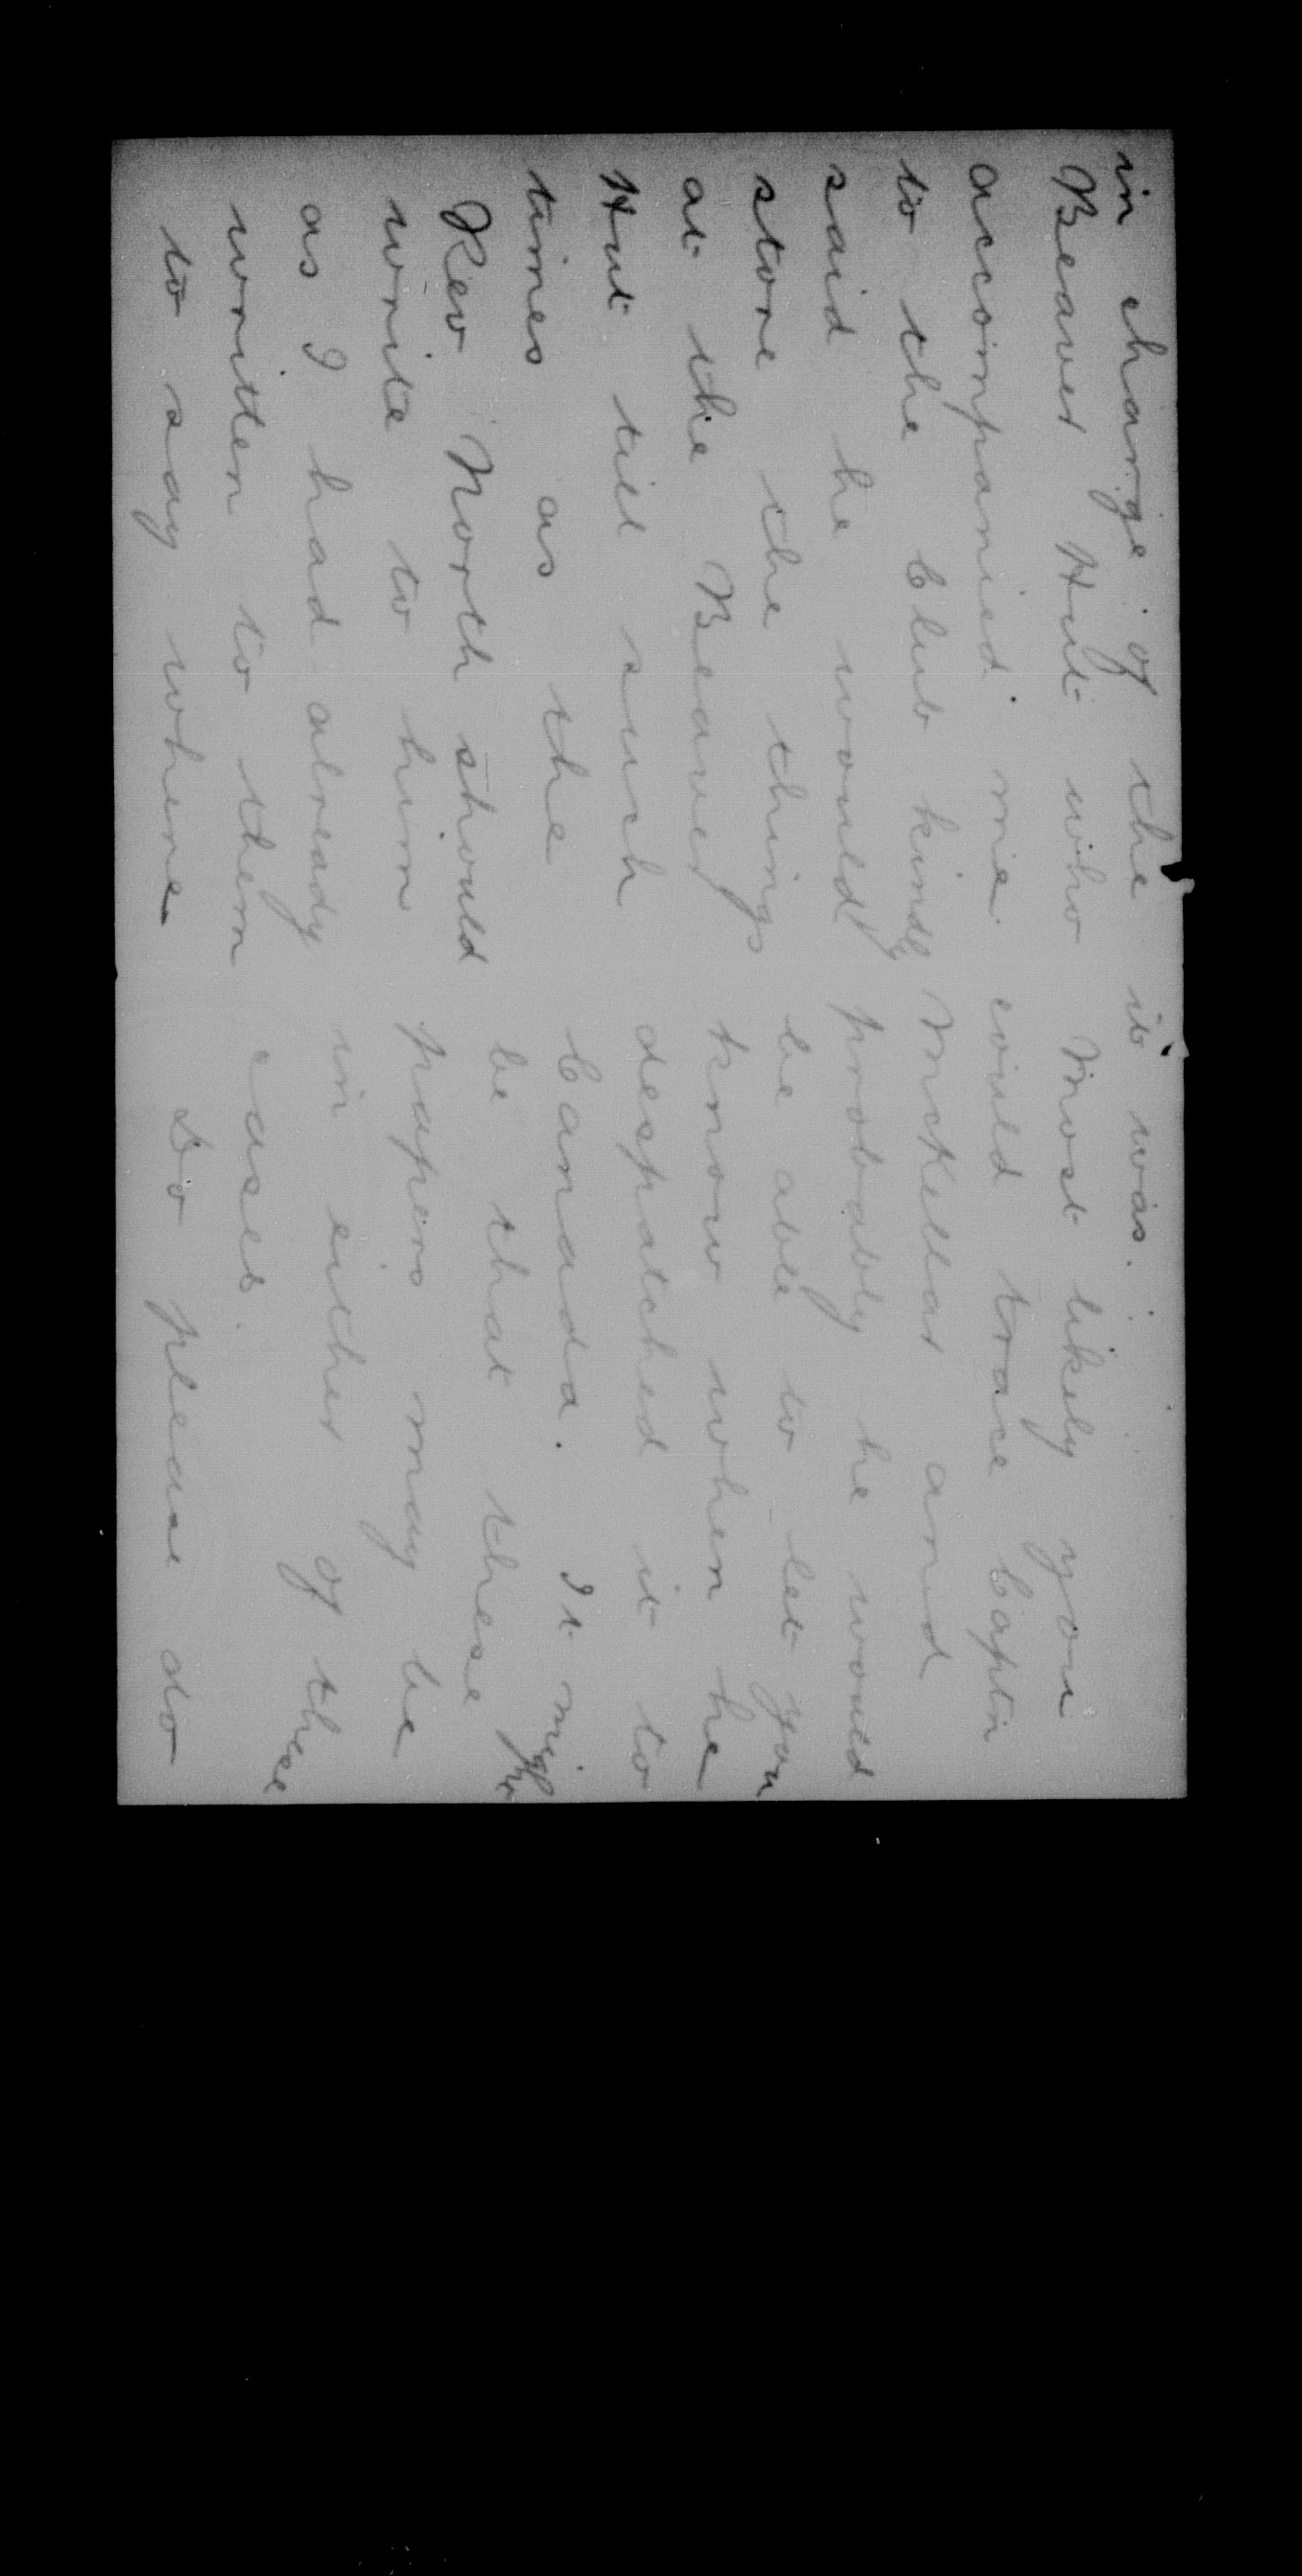 in charge of the
Beaver Hut who
accompanied me
to the Club kindly
said he would
store the things
at the Beaver
Hut till such
times as the
Rev North should
write to him
as I had already
written to them
to say where
it was.
Most likely you
could trace Captn
McKellar and
probably he would
be able to let you
know when he
despatched it to
Canada. It might
be that these
papers may be
in either of these
cases.
Do please do